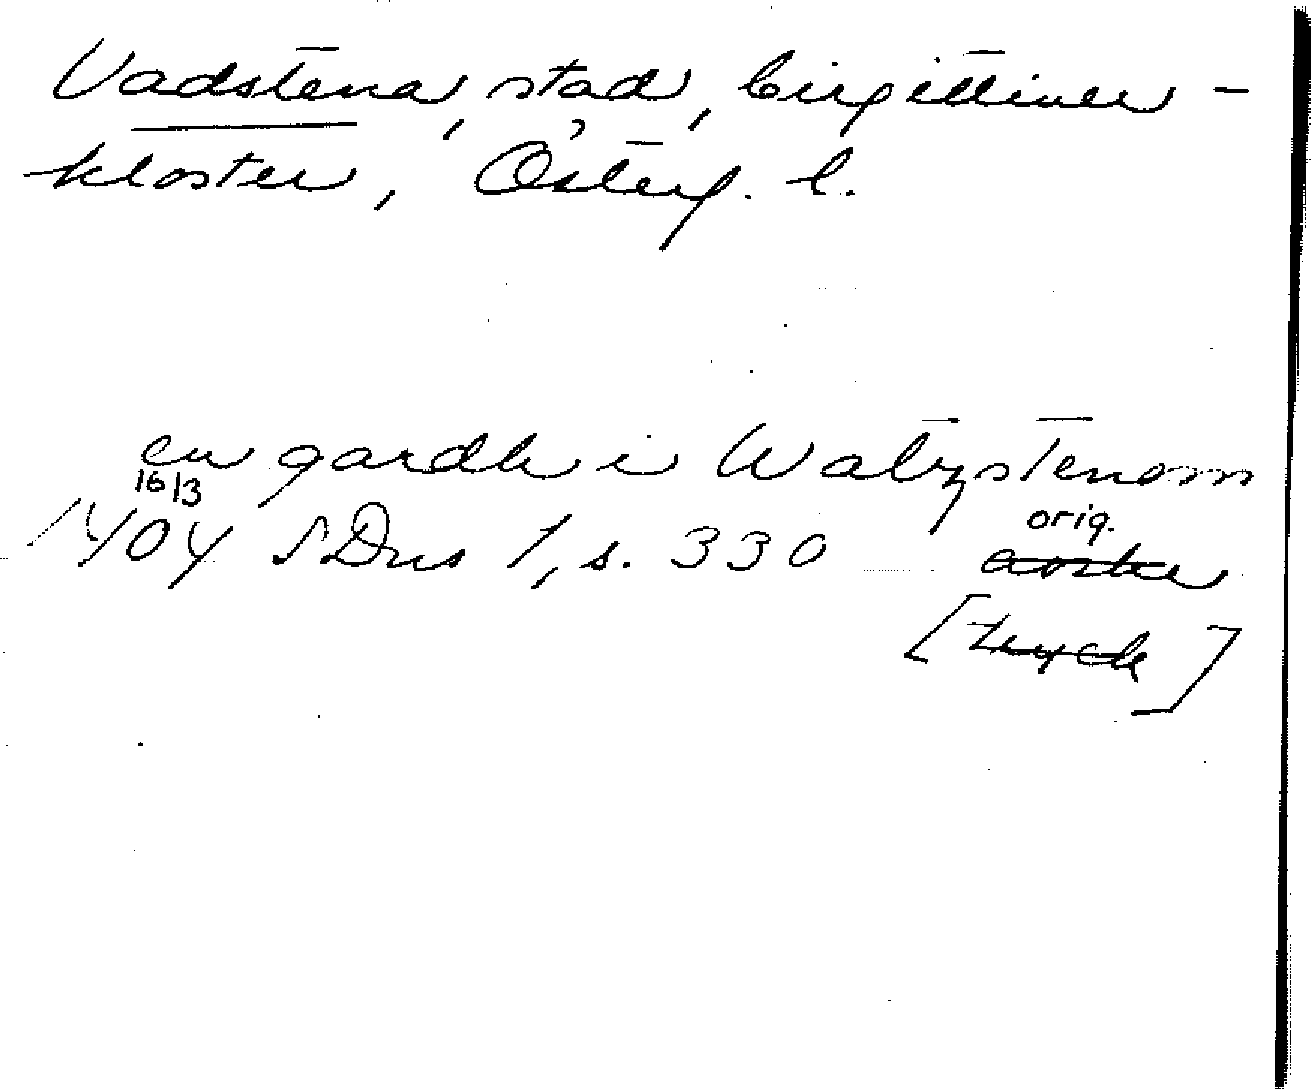 Vadstena, stad, birgittiner-
kloster, Österg. l.
en gardh i Watzstenom
16/3
1404 SDns 1, s. 330 orig.
[tryck]